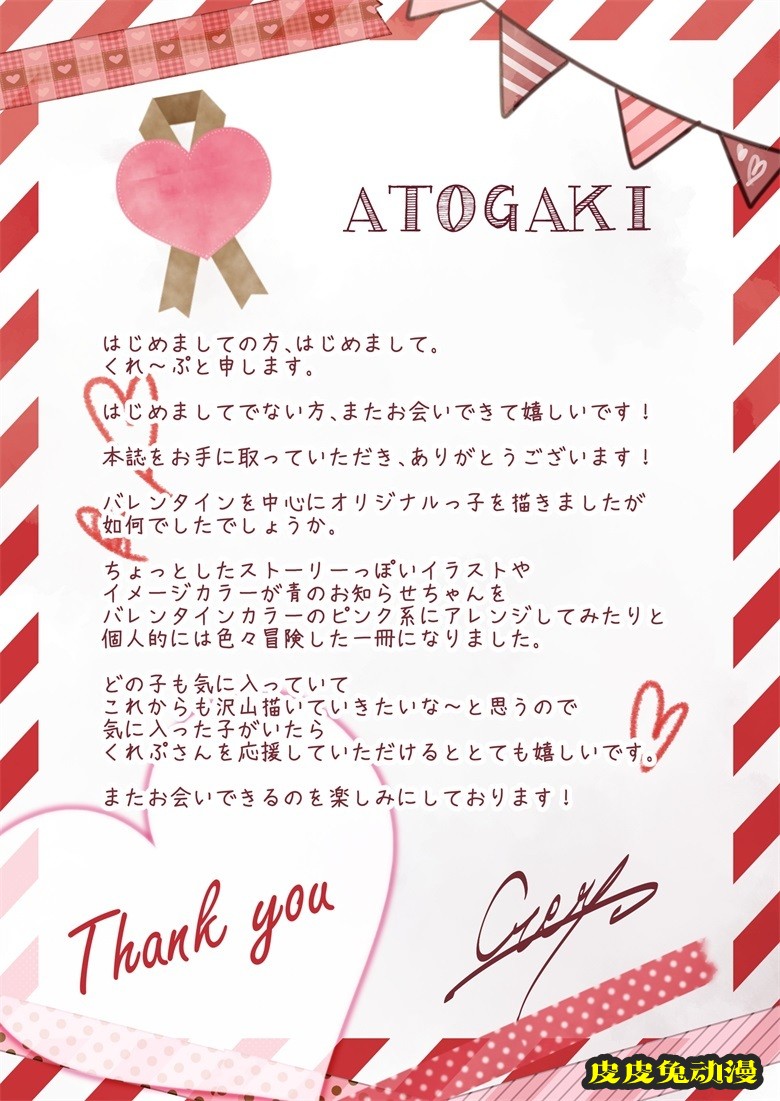 ATOGAKI
はじめましての方、はじめまして。
くれ～ぷと申します。
はじめましてでない方、またお会いできて嬉しいです！
本誌をお手に取っていただき、ありがとうございます！
バレンタインを中心にオリジナルっ子を描きましたが
如何でしたでしょうか。
ちょっとしたストーリーっぽいイラストや
イメージカラーが青のお知らせちゃんを
バレンタインカラーのピンク系にアレンジしてみたりと
個人的には色々冒険した一冊になりました。
どの子も気に入っていて
これからも沢山描いていきたいな～と思うので
気に入った子がいたら
くれぷさんを応援していただけるととても嬉しいです。
またお会いできるのを楽しみにしております！
Thank you
皮皮兔动漫